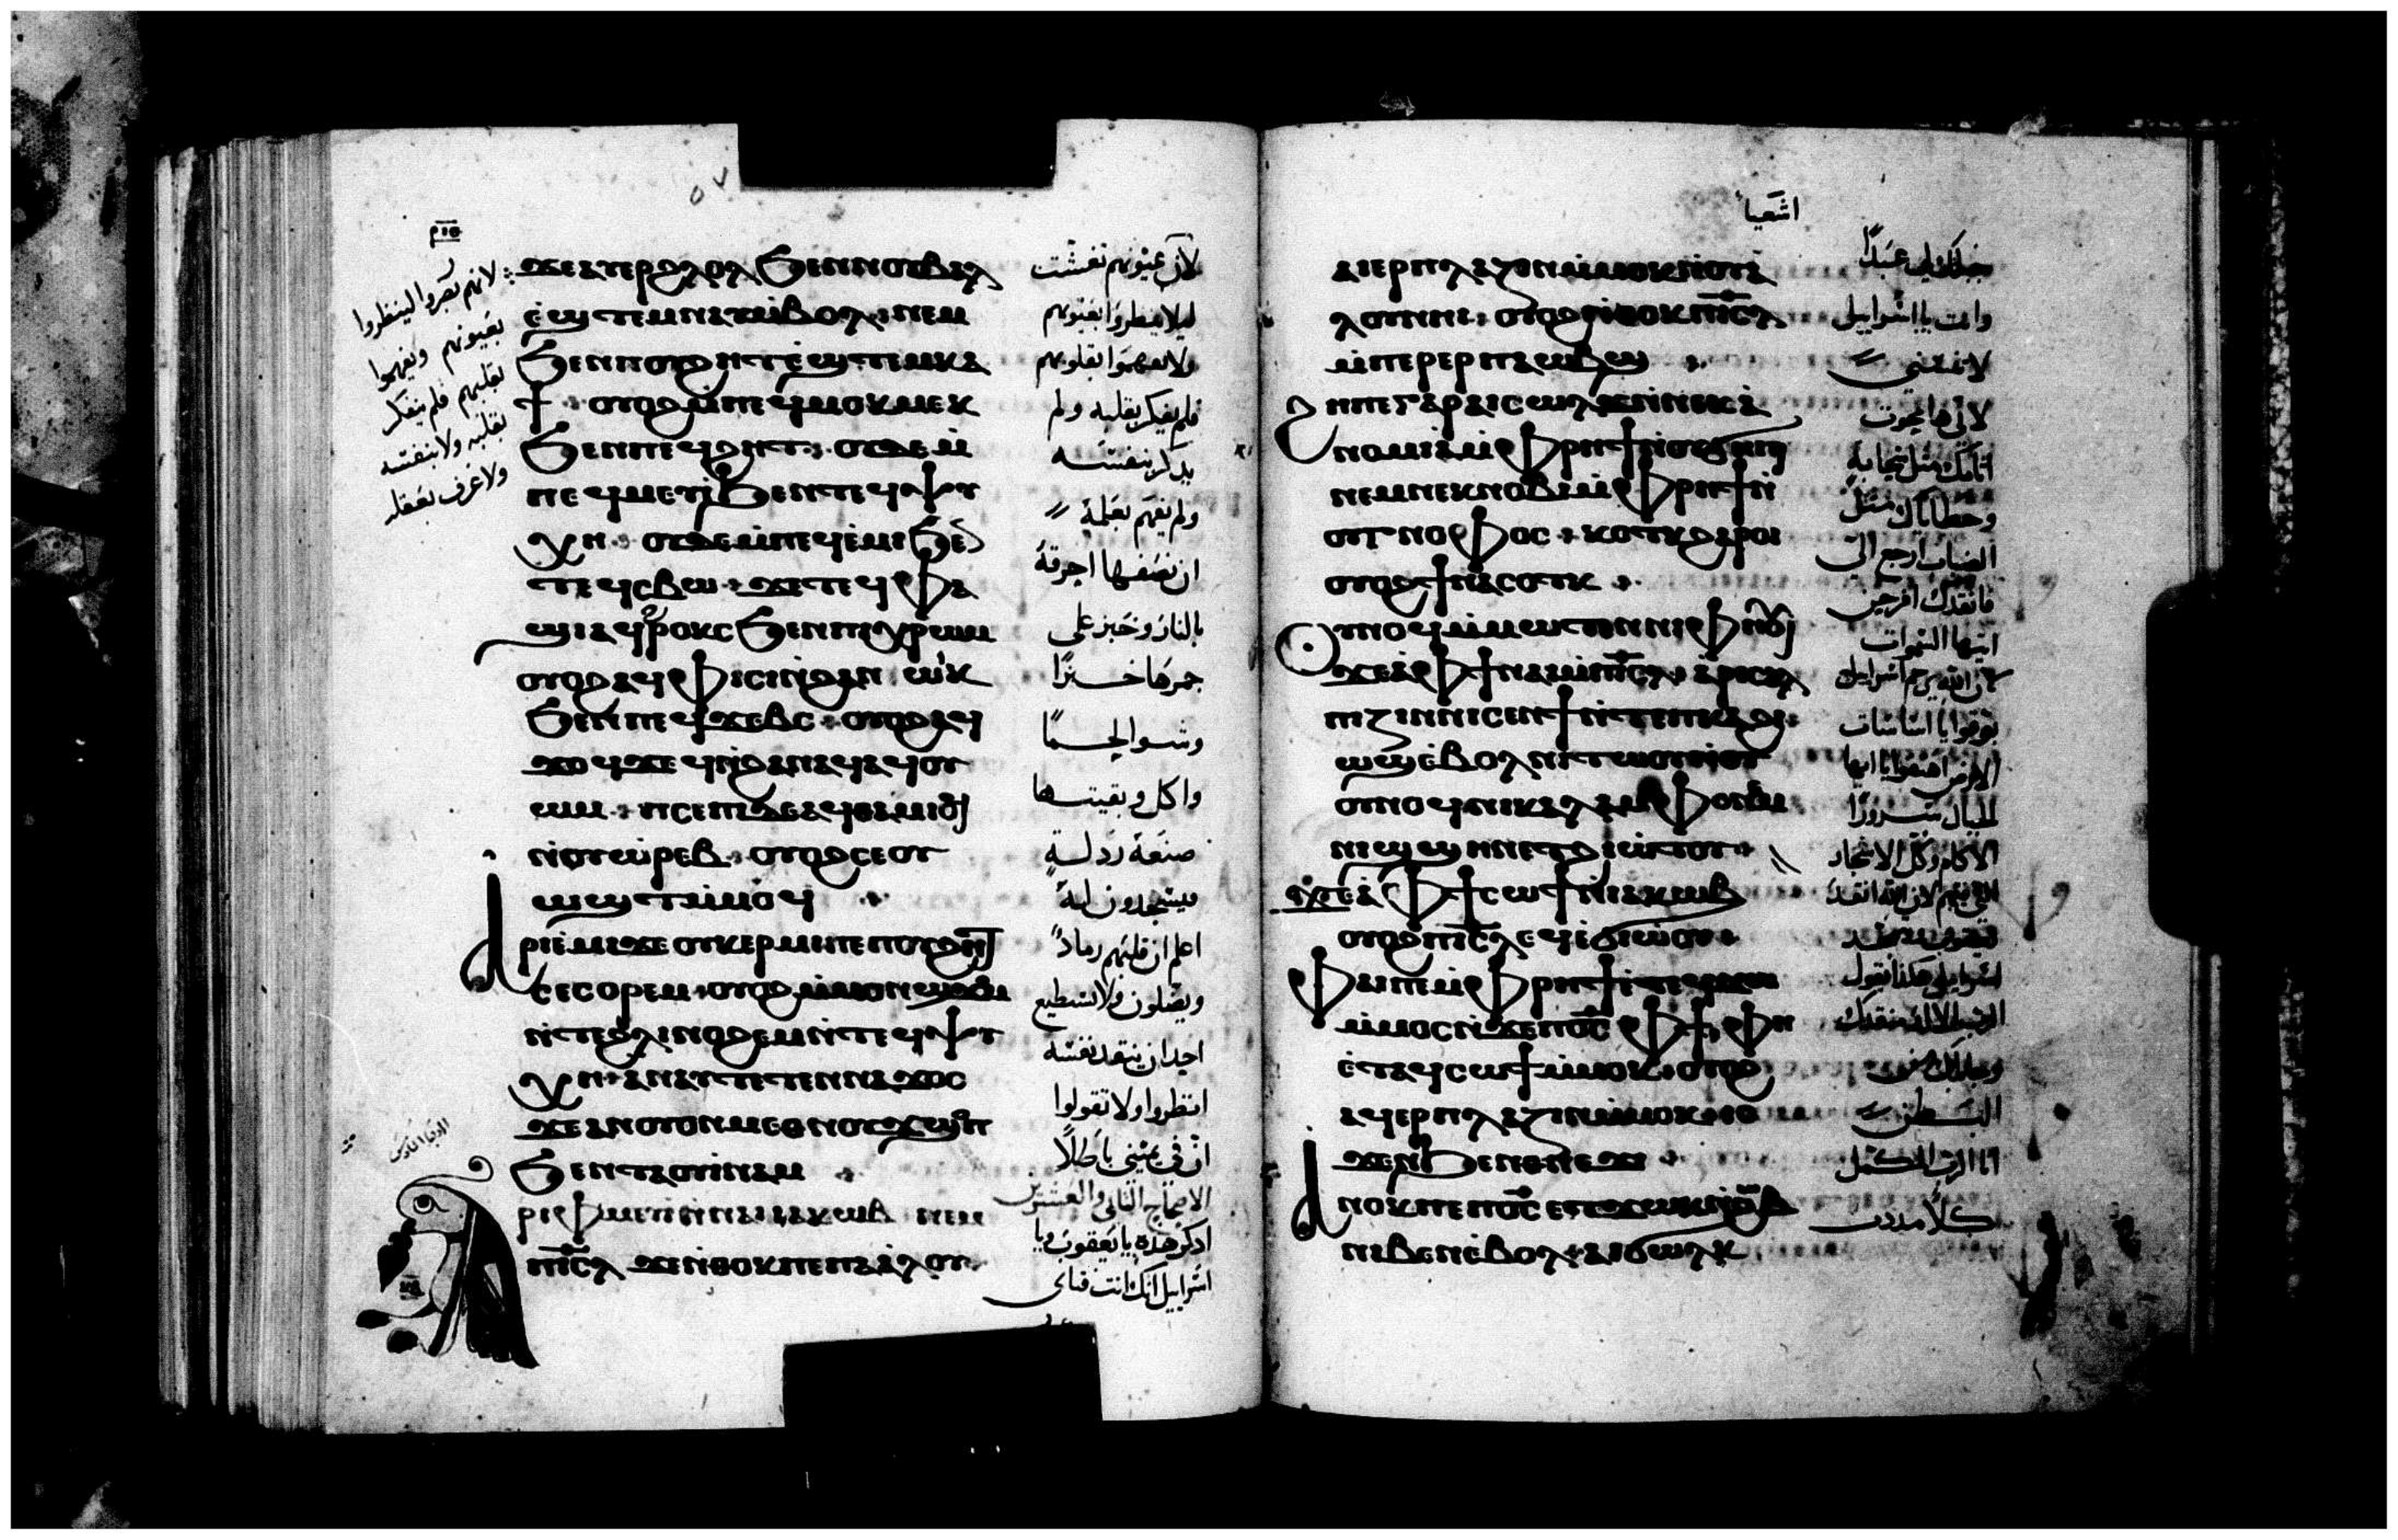 ⲙ̅ⲑ̅
٥٧
ϫⲉⲁⲩⲉⲣϩⲗⲟⲗ ϧⲉⲛⲛⲟⲩⲃⲁⲗ
ⲉ̇ϣⲧⲉⲙⲛⲁⲩⲙ̇ⲃⲟⲗ · ⲛⲉⲙ
ϧⲉⲛⲡⲟⲩϩⲏⲧ ⲉ̇ϣⲧⲉⲙⲕⲁ
ϯ · ⲟⲩⲟϩ ⲙ̇ⲡⲉϥⲙⲟⲕⲙⲉⲕ
ϧⲉⲛⲡⲉϥϩⲏⲧ · ⲟⲩⲇⲉ ⲙ̇
ⲡⲉϥⲙⲉⲩⲓ ϧⲉⲛⲧⲉϥⲯⲩ
ⲭⲏ · ⲟⲩⲇⲉ ⲙ̇ⲡⲉϥⲉ̇ⲙⲓ ϧⲉⲛ
ⲧⲉϥⲥⲃⲱ · ϫⲉ ⲧⲉϥⲫⲁ
ϣⲓ ⲁϥⲣⲟⲕϩⲥ ϧⲉⲛⲡⲓⲭⲣⲱⲙ
ⲟⲩⲟϩ ⲁϥⲫⲓⲥⲓ ⲛ̇ϩⲁⲛ ⲱⲓⲕ
ϧⲉⲛⲡⲉϥϫⲉⲃⲥ · ⲟⲩⲟϩ ⲁϥ
ϫⲟϥϫⲉϥ ⲛ̇ϩⲁⲛⲁϥ ⲁϥⲟⲩ
ⲱⲙ · ⲡⲥⲉⲡⲓ ⲇⲉ ⲁϥⲑⲁⲙⲓⲟϥ
ⲛ̇ⲟⲩⲱⲣⲉⲃ · ⲟⲩⲟϩ ⲥⲉⲟⲩ
ⲱϣⲧ ⲙ̇ⲙⲟϥ
ⲁⲣⲓⲉ̇ⲙⲓ ϫⲉ ⲟⲩⲕⲉⲣⲙⲓ ⲡⲉ ⲡⲟⲩϩⲏⲧ
ⲥⲉⲥⲟⲣⲉⲙ · ⲟⲩⲟϩ ⲙ̇ⲙⲟⲛ ϣϫⲟⲙ
ⲛ̇ⲧⲉϩⲗⲓ ⲛⲟϩⲉⲙ ⲛ̇ⲧⲉϥⲯⲩ
ⲭⲏ · ⲁⲛⲁⲩ ⲧⲉⲧⲉⲛⲛⲁϫⲟⲥ
ϫⲉ ⲁⲛ ⲟⲩⲟⲛ ⲙⲉⲑⲛⲟⲩϫ ϣⲟⲡ
ϧⲉⲛⲧⲁⲟⲩⲓ̇ⲛⲁⲙ
ⲁⲣⲓⲫⲙⲉⲩⲓ ⲛ̇ⲛⲁⲓ ⲓⲁⲕⲱⲃ ⲛⲉⲙ
ⲡⲓ̅ⲥ̅ⲗ̅ ϫⲉ ⲛ̇ⲑⲟⲕ ⲡⲉ ⲡⲁⲁ̇ⲗⲟⲩ
لان عيونهم تغشت
ليلا ينظروا بعيونهم
ولا يفهموا بقلوبهم
فلم يفكر بقلبه ولم
يذكر بنفسه
ولم يفهم بعلمه
ان نصفها احرقه
بالنار وخبز على
جمرها خبزًا
وشوا لحمًا
واكل وبقيتها
صنعه رذلة
فيسجدون له
اعلم ان قلبهم رمادً
ويضلون ولا يستطيع
احد ان ينقذ نفسه
انظروا ولا تقولوا
ان في يميني باطلًا
الاصحاح الثاني والعشرين
اذكر هذه يا يعقوب ويا
اسراييل انك انت فتاى
لانهم نغروا لينظروا
بعيونهم ويفهموا
بقلبهم فلم يفكر
بقلبه ولا بنفسه
ولا عرف بعقله
اشعيا
ⲁⲓⲉⲣⲡⲗⲁⲍⲓⲛ ⲙ̇ⲙⲟⲕ ⲛ̇ⲟⲩⲁ̇
ⲗⲟⲩ ⲛⲏⲓ · ⲟⲩⲟϩ ⲛ̇ⲑⲟⲕ ⲡⲓ̅ⲥ̅ⲗ̅
ⲙ̇ⲡⲉⲣⲉⲣⲡⲁⲱⲃϣ
ϩⲏⲡⲡⲉ ⲅⲁⲣ ⲁⲓⲥⲱⲗϫ ⲛ̇ⲛⲉⲕⲁ̇
ⲛⲟⲙⲓⲁ̇ ⲙ̇ⲫⲣⲏϯ ⲛ̇ⲟⲩϭⲏⲡⲓ
ⲛⲉⲙ ⲛⲉⲕⲛⲟⲃⲓ ⲙ̇ⲫⲣⲏϯ ⲛ̇
ⲟⲩⲅⲛⲟⲫⲟⲥ · ⲕⲟⲧⲕ ϩⲁⲣⲟⲓ
ⲟⲩⲟϩ ϯⲛⲁⲥⲟⲧⲕ
ⲟⲩⲛⲟϥ ⲙ̇ⲙⲱⲧⲉⲛ ⲛⲓⲫⲏⲟⲩⲓ̇
ϫⲉ ⲁ̇ ⲫϯ ⲛⲁⲓ ⲙ̇ⲡⲓ̅ⲥ̅ⲗ̅ · ⲁⲣⲓⲥⲁⲗ
ⲡⲓⲍⲓⲛ ⲛⲓⲥⲉⲛϯ ⲛ̇ⲧⲉ ⲡⲕⲁϩⲓ
ⲱϣ ⲉ̇ⲃⲟⲗ ⲛⲓⲧⲱⲟⲩ ⲛ̇ⲟⲩ
ⲟⲩⲛⲟϥ ⲛⲓⲕⲁⲗⲁⲙⲫⲟ ⲛⲉⲙ
ⲛⲓϣϣⲏⲛ ⲉⲧϩⲓⲱⲧⲟⲩ
ϫⲉ ⲁ̇ ⲫϯ ⲥⲱϯ ⲛ̇ⲓⲁⲕⲱⲃ
ⲟⲩⲟϩ ⲡⲓ̅ⲥ̅ⲗ̅ ⲉϥⲉ̇ϭⲓⲱ̇ⲟⲩ
ⲫⲁⲓ ⲡⲉ ⲙ̇ⲫⲣⲏϯ ⲉ̇ⲧⲉϥϫⲱ
ⲙ̇ⲙⲟⲥ ⲛ̇ϫⲉ ⲡⲟ̅ⲥ̅ ⲫϯ ⲫⲏ
ⲉ̇ⲧⲁϥⲥⲱϯ ⲙ̇ⲙⲟⲕ · ⲟⲩⲟϩ
ⲁϥⲉⲣⲡⲗⲁⲍⲓⲛ ⲙ̇ⲙⲟⲕ
ϧⲉⲛⲑⲛⲉϫⲓ
ⲁⲛⲟⲕ ⲡⲉ ⲡⲟ̅ⲥ̅ ⲉⲧϫⲱⲕ ⲛ̇ϩⲱⲃ
ⲛⲓⲃⲉⲛ ⲉ̇ⲃⲟⲗ · ⲁⲓϭⲱⲗⲕ
جبلتك لى عبدًا
وانت يا اسراييل
لا تنسني
لانى ها محوت
اثامك مثل سحابة
وخطاياك مثل
الضباب ارجع الىّ
فانقذك افرحي
ايتها السموات
لان الله يرحم اسراييل
بوقوا يا اساسات
الارض اهتفوا يا ايها
الجبال سرورًا
الاكام وكل الاشجار
التي فيهم لان الله انقذ
يعقوب
اسراييل هكذا يقول
الرب الاله منقذك
وجابلك من
البطن
انا الرب المكمل
كلًا مددت